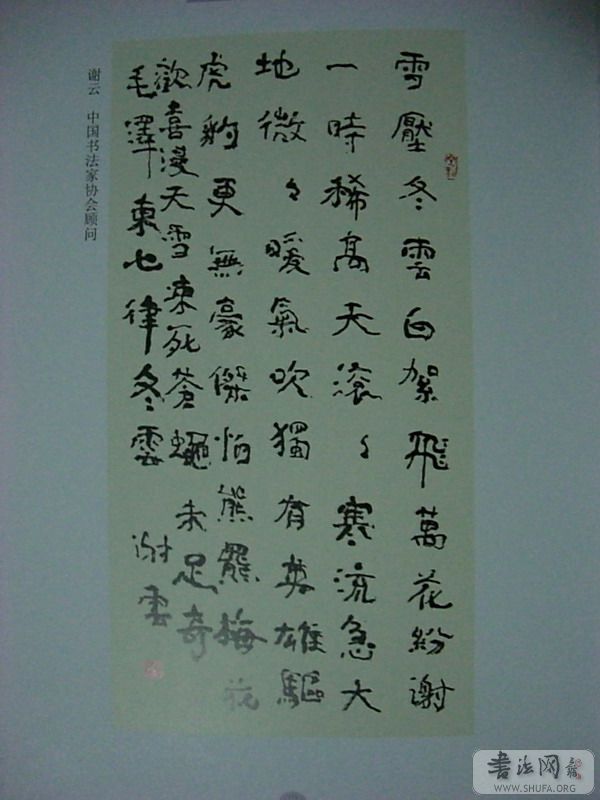 雪壓冬雲白絮飛萬花紛謝
一時稀高天滾〻寒流急大
地微〻暖氣吹獨有英雄驅
虎豹更無豪傑怕熊羆梅花
歡喜漫天雪凍死蒼蠅未足奇
毛澤東七律冬雲 謝雲
谢云 中国书法家协会顾问
书法网
WWW.SHUFA.ORG